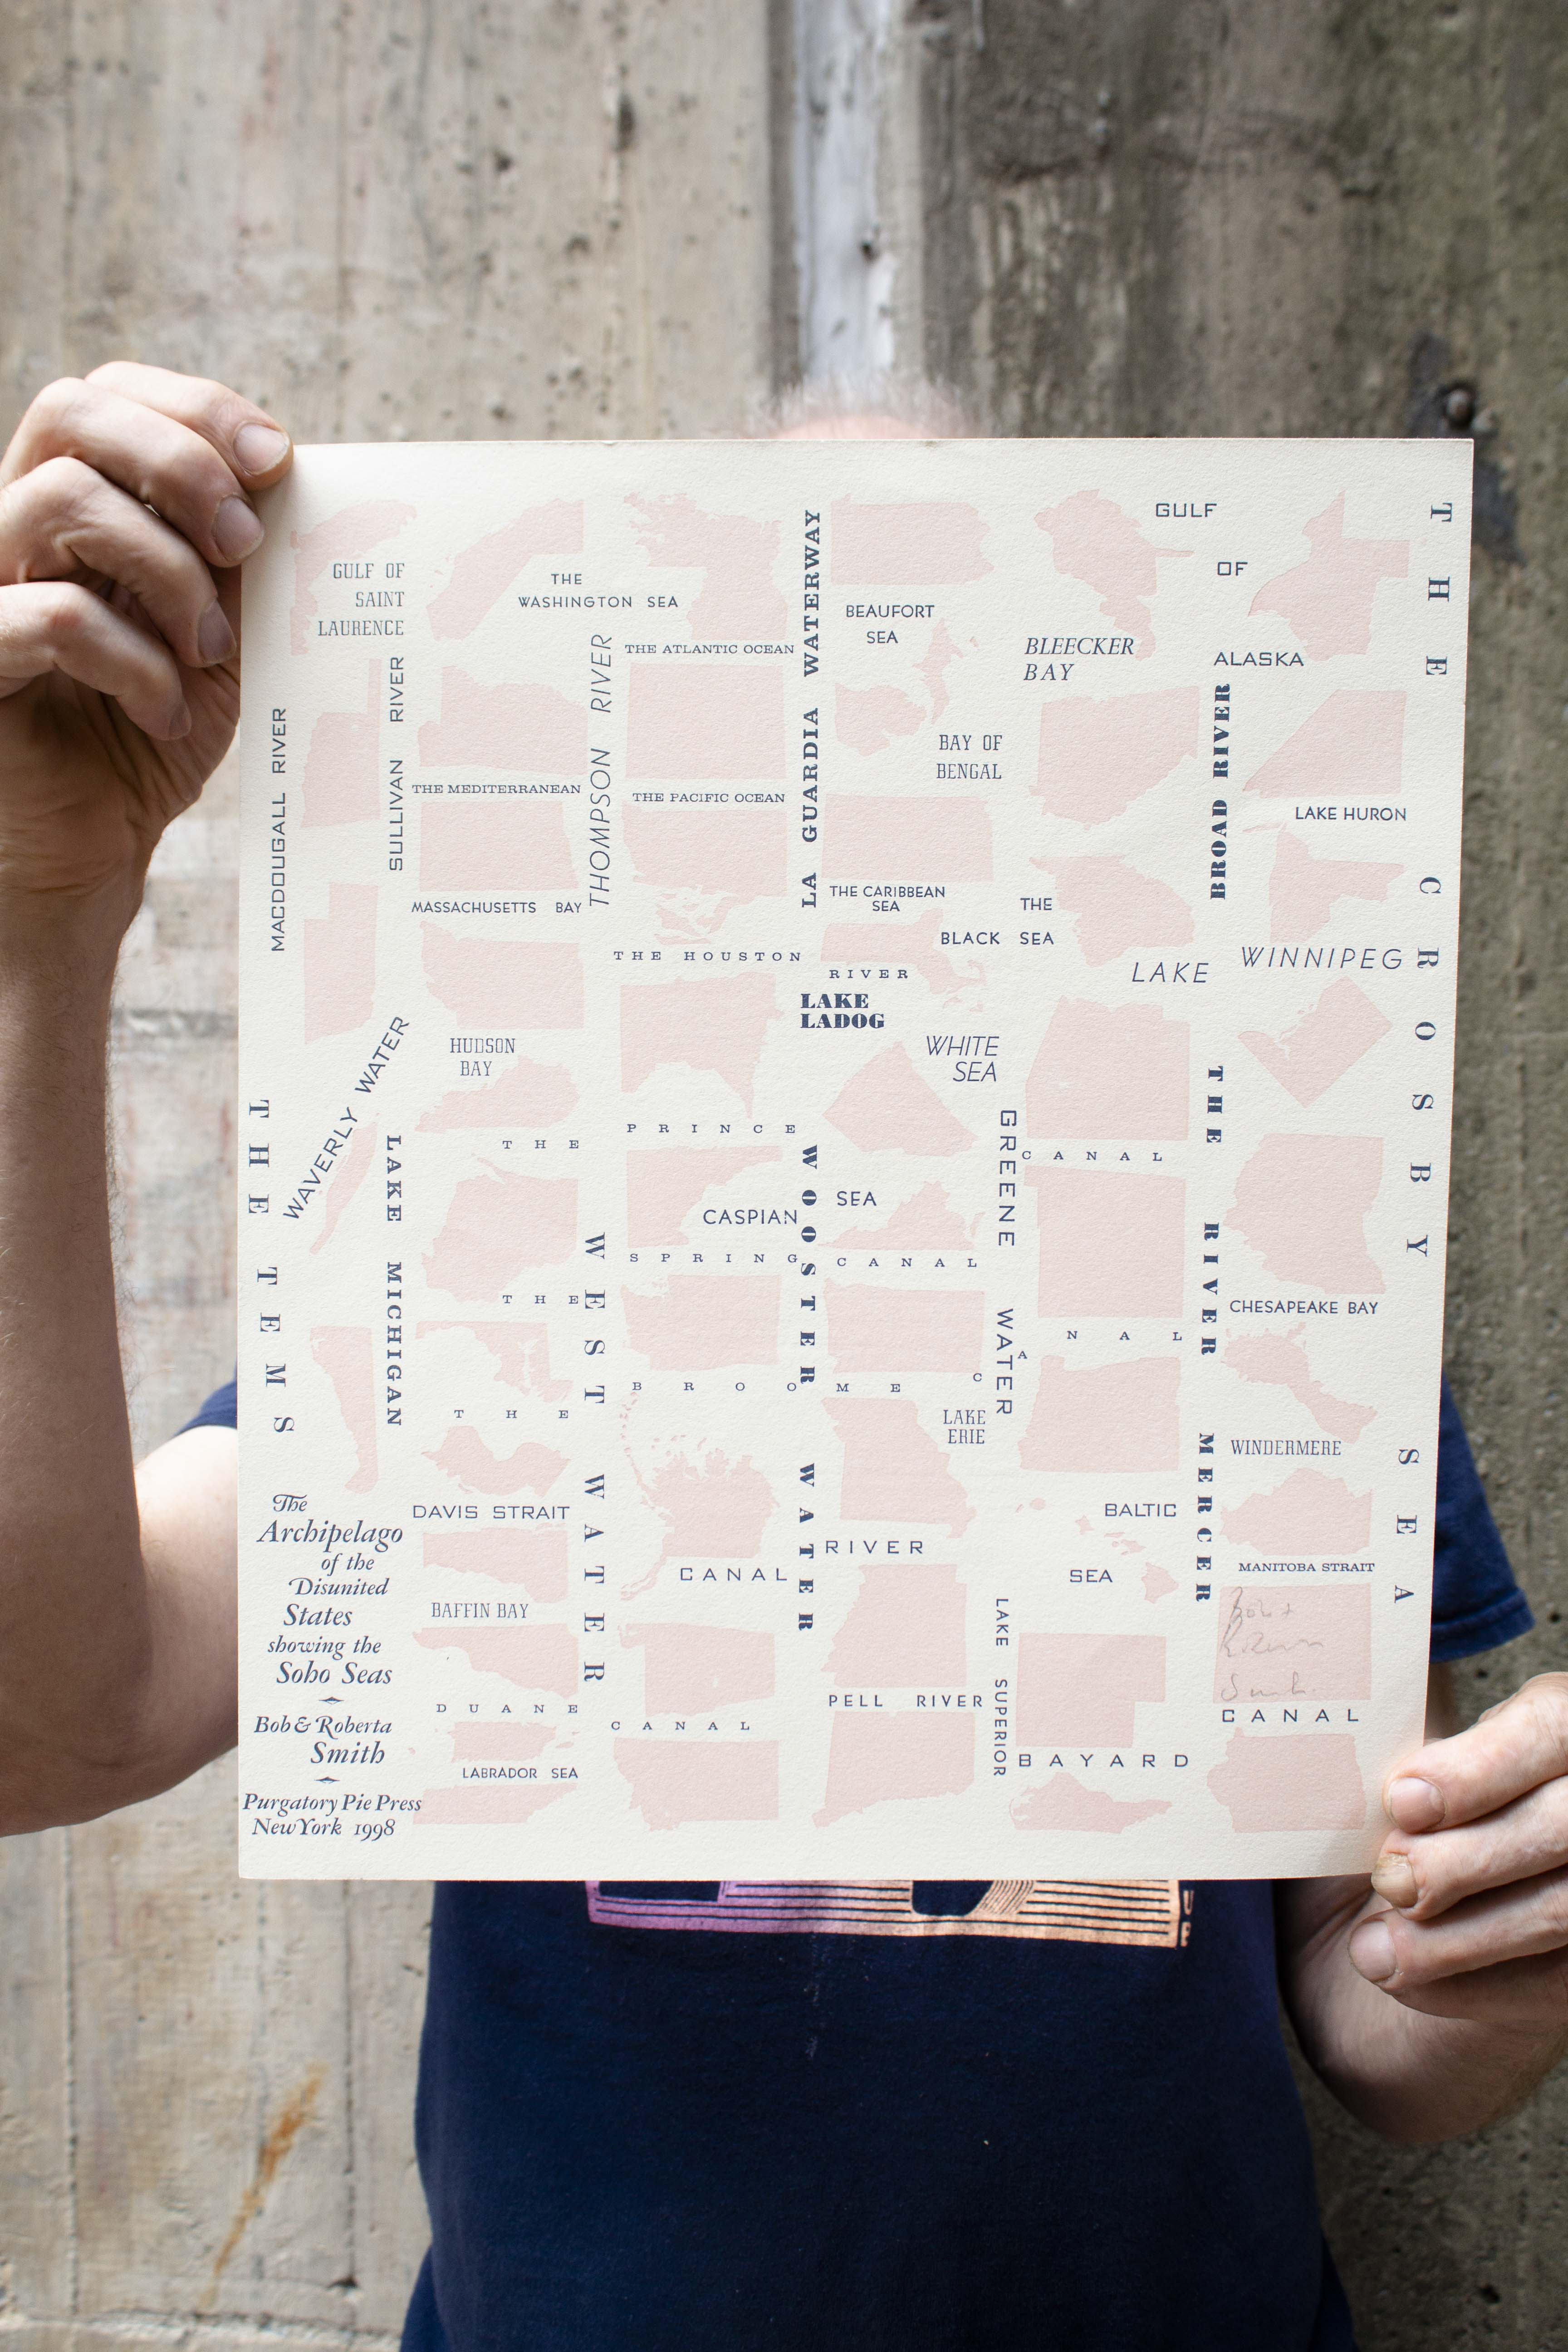 GULF OF
SAINT
LAURENCE
THE
WASHINGTON SEA
THE ATLANTIC OCEAN
LA GUARDIA WATERWAY
BEAUFORT
SEA
BLEECKER
BAY
GULF
OF
ALASKA
THE CROSBY SEA
MACDOUGALL RIVER
SULLIVAN RIVER
THOMPSON RIVER
THE MEDITERRANEAN
THE PACIFIC OCEAN
BAY OF
BENGAL
BROAD RIVER
LAKE HURON
MASSACHUSETTS BAY
THE CARIBBEAN
SEA
THE
BLACK SEA
THE HOUSTON
RIVER
LAKE WINNIPEG
LAKE
LADOG
WHITE
SEA
HUDSON
BAY
WAVERLY WATER
THE TEMS
LAKE MICHIGAN
THE PRINCE
CANAL
WEST WATER
WOOSTER WATER
GREENE WATER
THE RIVER MERCER
CASPIAN SEA
THE SPRING CANAL
CHESAPEAKE BAY
THE BROOME CANAL
LAKE
ERIE
WINDERMERE
DAVIS STRAIT
CANAL RIVER
BALTIC
SEA
MANITOBA STRAIT
BAFFIN BAY
LAKE SUPERIOR
PELL RIVER
DUANE CANAL
LABRADOR SEA
BAYARD
CANAL
The
Archipelago
of the
Disunited
States
showing the
Soho Seas
Bob & Roberta
Smith
Purgatory Pie Press
New York 1998